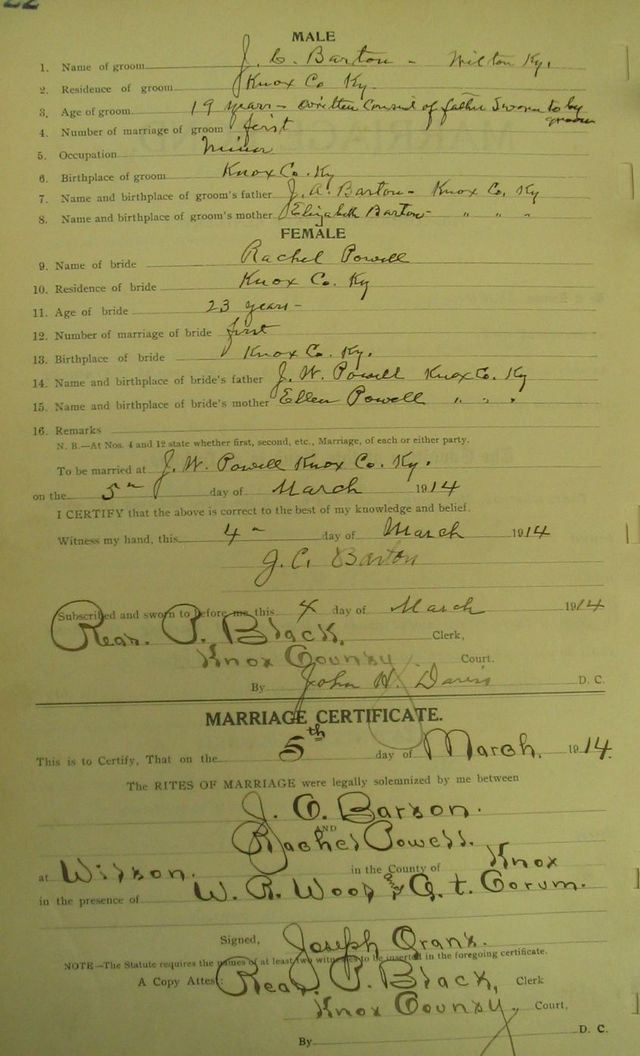 22
MALE
1. Name of groom J. C. Barton - Wilton Ky.
2. Residence of groom Knox Co Ky.
3. Age of groom 19 years - written Consent of father Sworn to by groom
4. Number of marriage of groom first
5. Occupation Miner
6. Birthplace of groom Knox Co. Ky
7. Name and birthplace of groom's father J. A. Barton - Knox Co. Ky
8. Name and birthplace of groom's mother Elizabeth Barton " " "
FEMALE
9. Name of bride Rachel Powell
10. Residence of bride Knox Co. Ky
11. Age of bride 23 years -
12. Number of marriage of bride first
13. Birthplace of bride Knox Co. Ky.
14. Name and birthplace of bride's father J. W. Powell Knox Co. Ky
15. Name and birthplace of bride's mother Ellen Powell " " "
16. Remarks
N. B.—At Nos. 4 and 12 state whether first, second, etc., Marriage, of each or either party.
To be married at J. W. Powell Knox Co. Ky.
on the 5th day of March 1914
I CERTIFY that the above is correct to the best of my knowledge and belief.
Witness my hand, this 4 - day of March 1914
J. C. Barton
Subscribed and sworn to before me this 4 day of March 1914
Read P. Black, Clerk,
Knox County Court.
By John H. Davis D. C.
MARRIAGE CERTIFICATE.
This is to Certify, That on the 5th day of March. 1914.
The RITES OF MARRIAGE were legally solemnized by me between
J. C. Barton.
AND
Rachel Powell.
at Wilton. in the County of Knox
in the presence of W. R. Wood and G. t. Corum.
Signed, Joseph
NOTE—The Statute requires the names of at least two witnesses to be inserted in the foregoing certificate.
A Copy Attest: Read P. Black, Clerk
Knox County, Court,
By D. C.